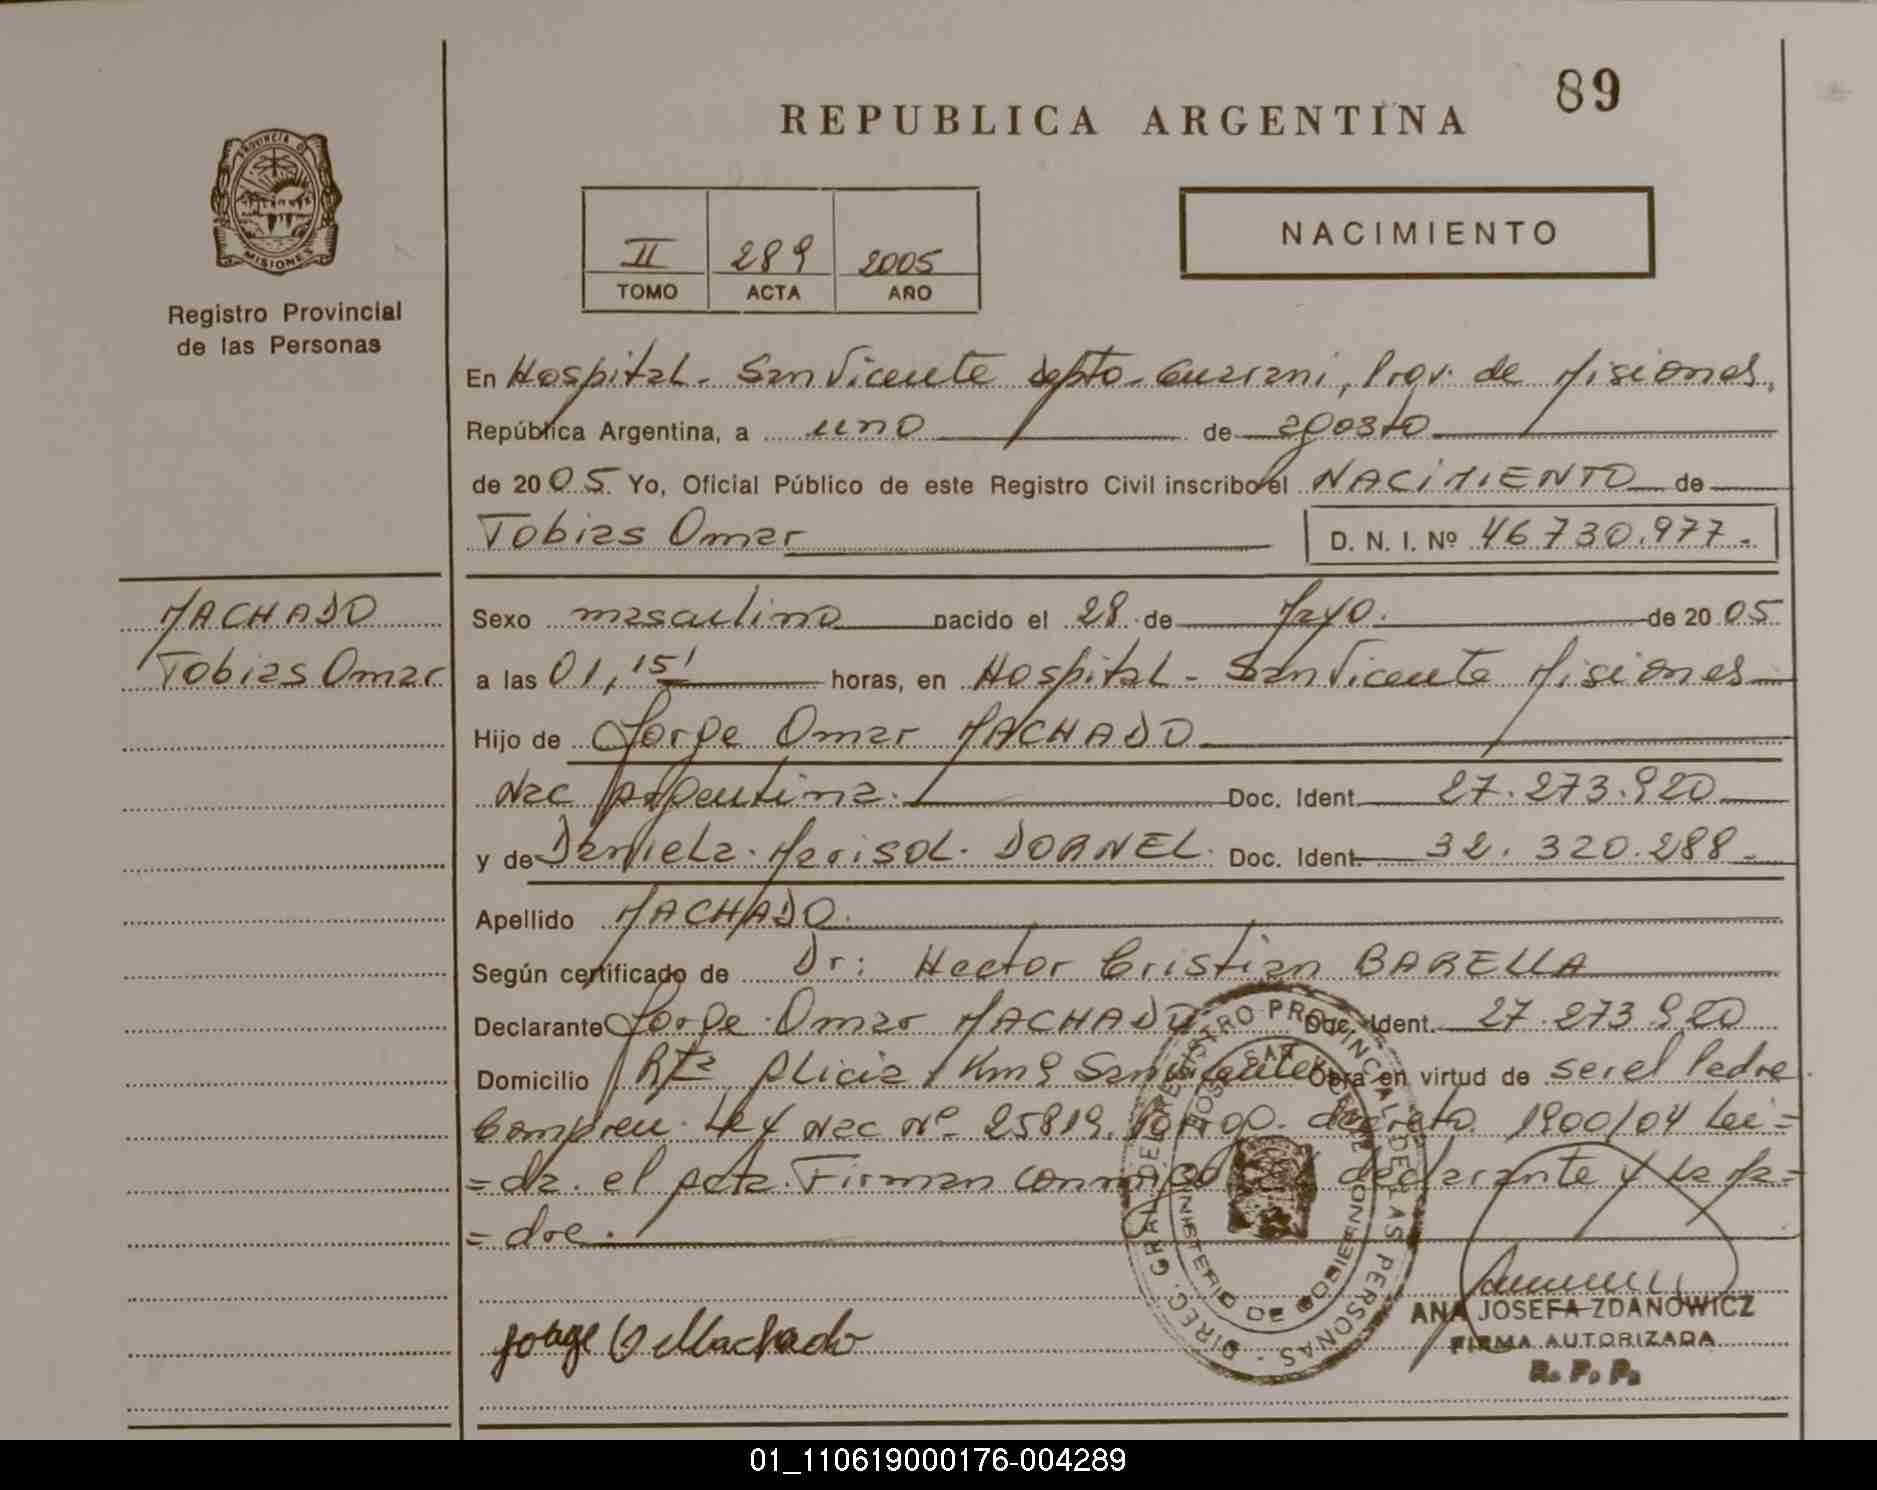 89
REPUBLICA ARGENTINA
PROVINCIA DE
MISIONES
Registro Provincial
de las Personas
II 289 2005
TOMO ACTA AÑO
NACIMIENTO
En Hospital - San Vicente depto - Guarani, Prov. de Misiones,
República Argentina, a uno de agosto
de 2005. Yo, Oficial Público de este Registro Civil inscribo el NACIMIENTO de
Tobias Omar D. N. I. Nº 46.730.977.-
MACHADO
Tobias Omar
Sexo masculino nacido el 28 de Mayo. de 2005
a las 01,15' horas, en Hospital - San Vicente Misiones
Hijo de Jorge Omar MACHADO
Nac Argentina. Doc. Ident. 27.273.920
y de Daniela. Marisol. DORNEL. Doc. Ident. 32.320.288.-
Apellido MACHADO.
Según certificado de Dr: Hector Cristian BARELLA
Declarante Jorge Omar MACHADO Doc. Ident. 27.273.920
Domicilio Rta Alicia Km 9 San Vicente Obra en virtud de ser el Padre
Compren. Ley Nac Nº 25819. Prorrgo. decreto 1900/04 Lei=
=da. el Acta. Firman conmigo declarante y la Ma=
=dre.
DIREC. GRAL. DEL REGISTRO PROVINCIAL DE LAS PERSONAS -
MINISTERIO DE GOBIERNO
SAN VICENTE
Jorge O Machado
ANA JOSEFA ZDANOWICZ
FIRMA AUTORIZADA
R. P. P.
01_110619000176-004289